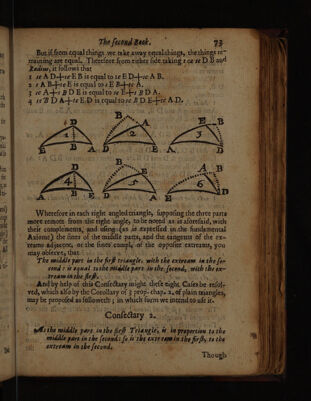 The second Book. 73
But if from equal things we take away equal things, the things re-
maining are equal. Therefore from either side taking 2 or se D B and
Radius, it follows that
1 se A D + se E B is equal to se E D + se A B.
2 s A B + se E is equal to s E B + se A.
3 se A + s B D E is equal to se E + s B D A.
4 se B D A + se E D is equal to se B D E + se A D.
D
1
E B A
B
2
D
E B
3
A D
D
4
A B E
B
E
5
A D
A B
6
E D
Wherefore in each right angled triangle, supposing the three parts
more remote from the right angle, to be noted as is aforesaid, with
their complements, and using (as is expressed in the fundamental
Axiome) the sines of the middle parts, and the tangents of the ex-
treams adjacent, or the sines compl. of the opposite extreams, you
may observe, that
The middle part in the first triangle, with the extream in the se-
cond: is equal to the middle part in the second, with the ex-
tream in the first.
And by help of this Consectary might these eight Cases be resol-
ved, which also by the Consectary of 3 prop. chap. 2. of plain triangles,
may be proposed as followeth; in which form we intend to use it.
Consectary 2.
As the middle part in the first Triangle, is in proportion to the
middle part in the second: so is the extream in the first, to the
extream in the second.
Though